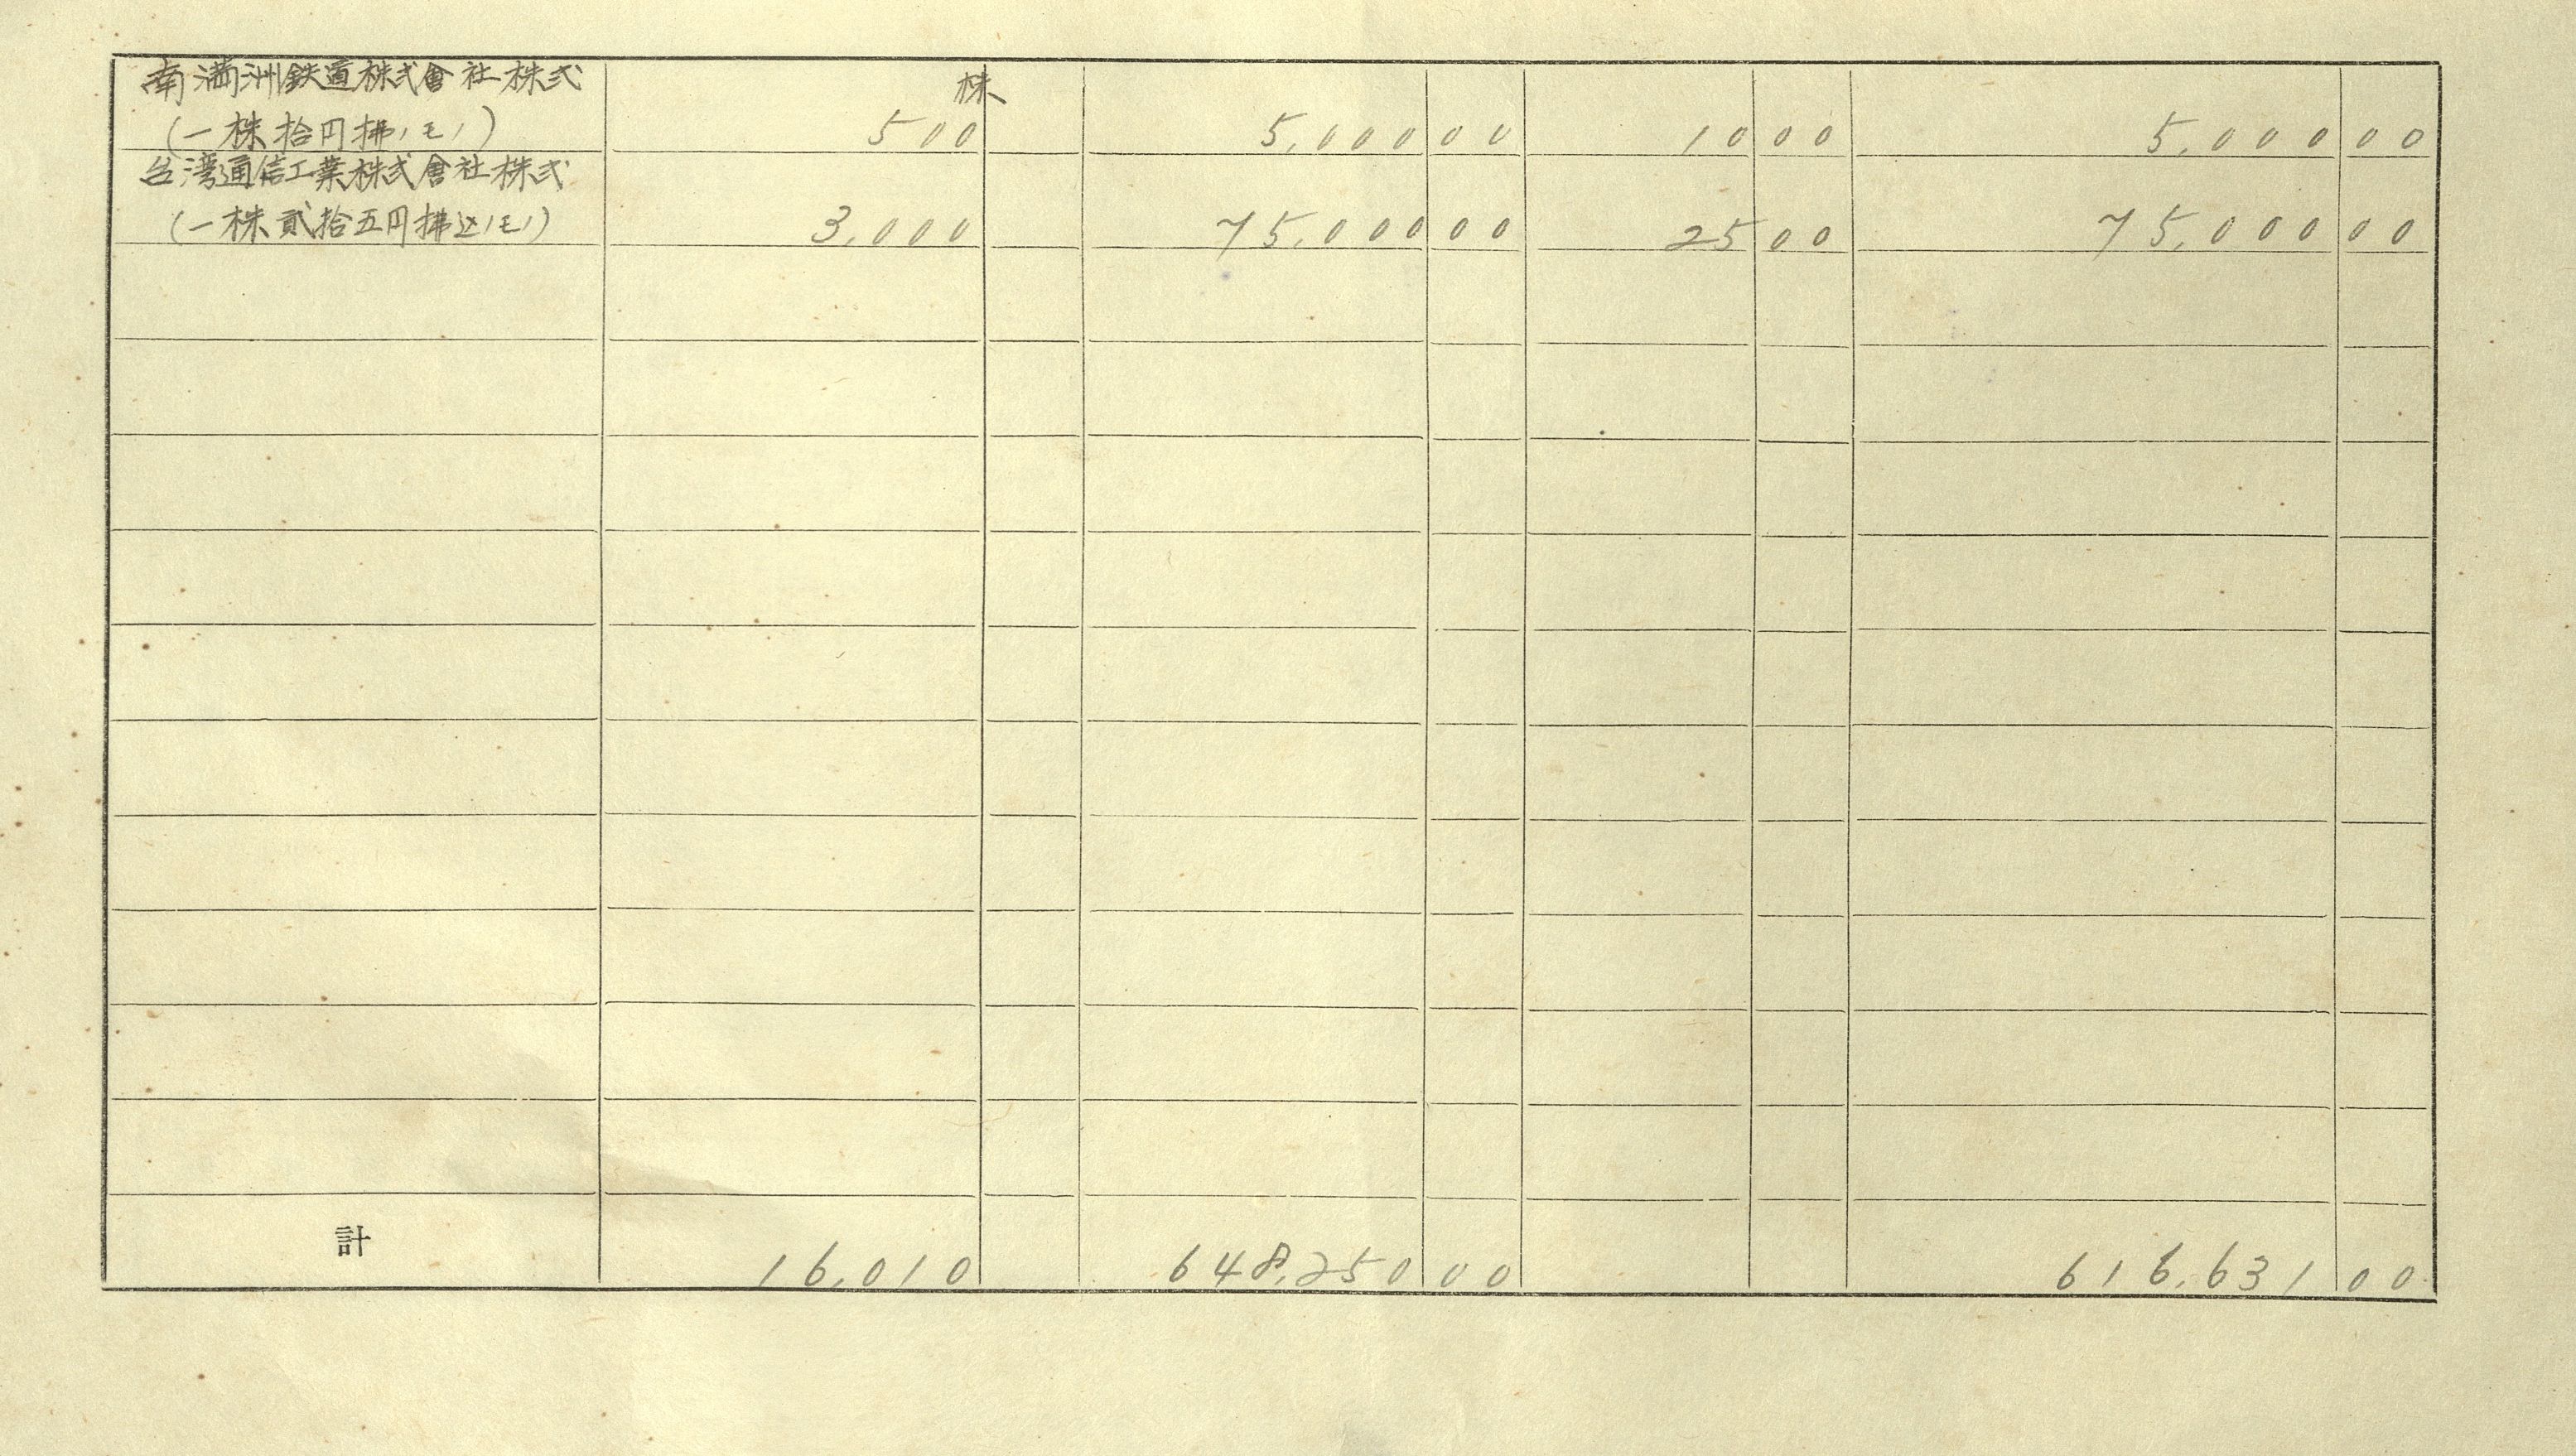 南満洲鉄道株式會社株式
(一株拾円拂ノモノ) 株 500 5,000 00 10 00 5,000 00
台湾通信工業株式會社株式
(一株貳拾五円拂込ノモノ) 3,000 75,000 00 25 00 75,000 00
計 16,010 648,250 00 616,631 00